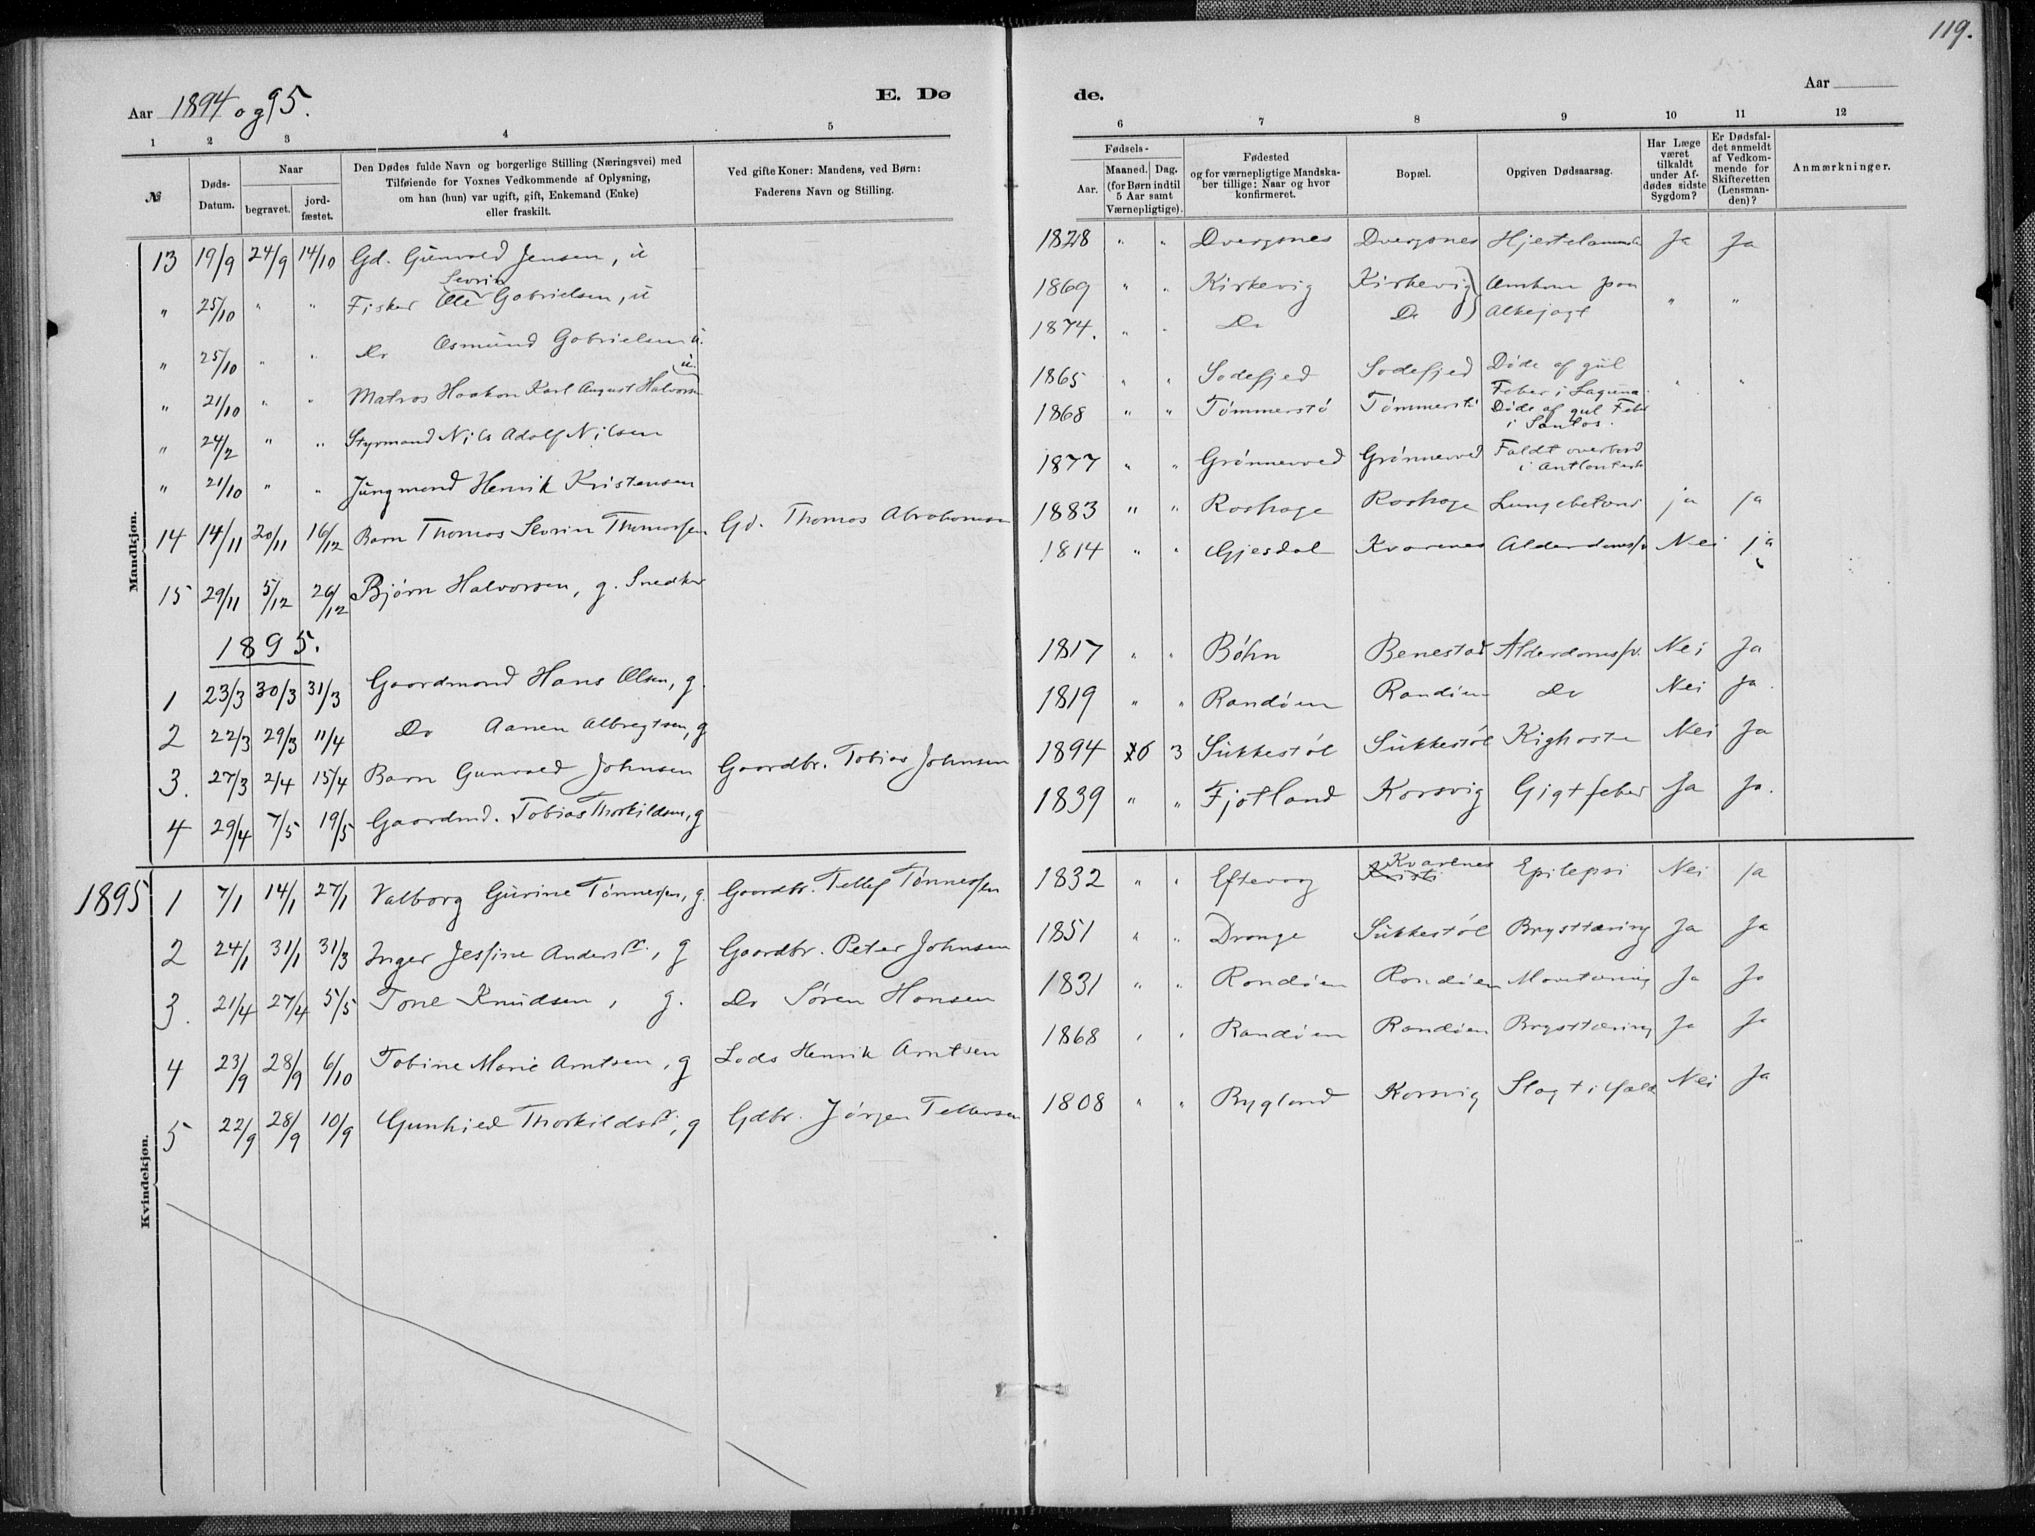 119.
Aar 1894 og 95.
E. Dø
de.
Aar
1 2 3 4 5
6 7 8 9 10 11 12
№
Døds-Datum.
Naar
begravet.
jord-fæstet.
Den Dødes fulde Navn og borgerlige Stilling (Næringsvei) med
Tilføiende for Voxnes Vedkommende af Oplysning,
om han (hun) var ugift, gift, Enkemand (Enke)
eller fraskilt.
Ved gifte Koner: Mandens, ved Børn:
Faderens Navn og Stilling.
Fødsels-
Aar.
Maaned. Dag.
(for Børn indtil
5 Aar samt
Værnepligtige).
Fødested
og for værnepligtige Mandska-
ber tillige: Naar og hvor
konfirmeret.
Bopæl.
Opgiven Dødsaarsag.
Har Læge
været
tilkaldt
under Af-
dødes sidste
Sygdom?
Er Dødsfal-
det anmeldt
af Vedkom-
mende for
Skifteretten
(Lensman-
den)?
Anmærkninger.
Mandkjøn.
13 19/9 24/9 14/10 Gd. Gunvald Jensen, u 1828 " " Dvergsnes Dvergsnes Ja Ja
" 25/10 " " Fisker Ole Severin Gabrielsen, u 1869 " " Kirkevig Kirkevig Omkom paa " "
" 25/10 " " Do Osmund Gabrielsen u. 1874. " " Do Do Alkejagt
" 21/10 " " Matros Haakon Karl August Halvorsen u. 1865 " " Sodefjed Sodefjed Døde af gul Feber i Laguna. " "
" 24/2 " " Styrmand Nils Adolf Nilsen 1868 " " Tømmerstø Tømmerstø Døde af gul Feber i Santos.
" 21/10 " " Jungmand Henrik Kristensen 1877 " " Faldt overbord i
14 14/11 20/11 16/12 Barn Thomas Severin Thomassen Gd. Thomas Abrahamsen 1883 " " Roshage Roshage ja ja
15 29/11 5/12 26/12 Bjørn Halvorsen, g. Snedker 1814 " " Gjesdal Kvarenes Alderdomssv. Nei ja
1895.
1 23/3 30/3 31/3 Gaardmand Hans Olsen, g. 1817 " " Bøhn Benestad Alderdomssv. Nei Ja
2 22/3 29/3 11/4 Do Aanen Albregtsen, g 1819 " " Randøen Randøen Do Nei Ja.
3. 27/3 2/4 15/4 Barn Gunvald Johnsen Gaardbr. Tobias Johnsen 1894 6 3 Sukkestøl Sukkestøl Kighoste Nei Ja
4 29/4 7/5 19/5 Gaardmd. Tobias Thorkildsen, g 1839 " " Fjotland Korsvig Gigtfeber Ja Ja.
Kvindekjøn.
1895 1 7/1 14/1 27/1 Valborg Gurine Tønnessen, g. Gaardbr. Tellef Tønnessen 1832 " " Eftevaag Kvarenes Epilepsi Nei Ja
2 24/1 31/1 31/3 Inger Jessine Andersdr., g Gaardbr. Peter Johnsen 1851 " " Drange Sukkestøl Brysttæring Ja Ja
3. 21/4 27/4 5/5 Tone Knudsen, g. Do Søren Hansen 1831 " " Randøen Randøen Mavetæring Ja Ja
4 23/9 28/9 6/10 Tobine Marie Arntsen, g Lods Henrik Arntsen 1868 " " Randøen Randøen Brysttæring Ja Ja
5 22/9 28/9 10/9 Gunhild Thorkildsdr., g Gdbr. Jørgen Tellefsen 1808 " " Bygland Korsvig Slagtilfælde Nei Ja